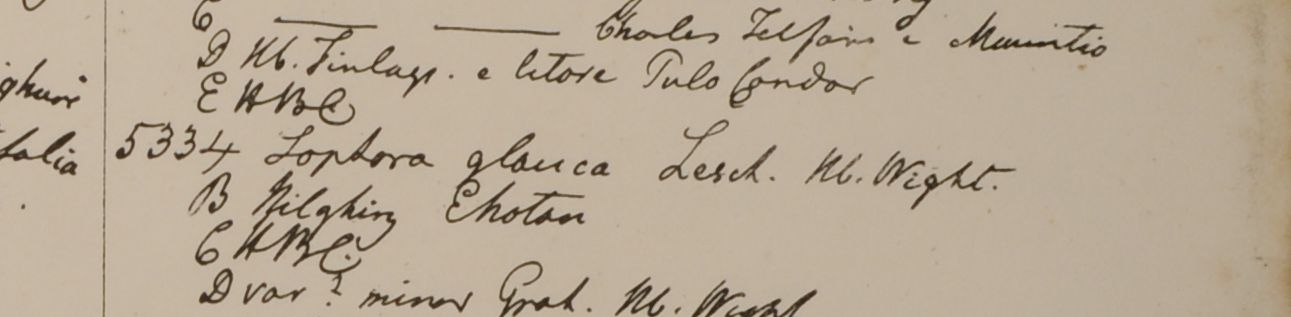 C —— —— Charles Telfair e Mauritio
D Hb. Finlays. e litore Pulo Condor
E HBC
5334 Sophora glauca Lesch. Hb. Wight.
B Nilghiry
C HBC.
D var? minor Grah. Hb. Wight